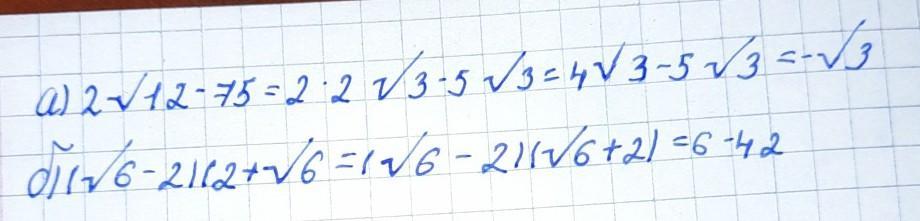 а) 2√12-75=2·2 √3-5√3=4√3-5√3=-√3
б) (√6-2)(2+√6=(√6-2)(√6+2)=6-42